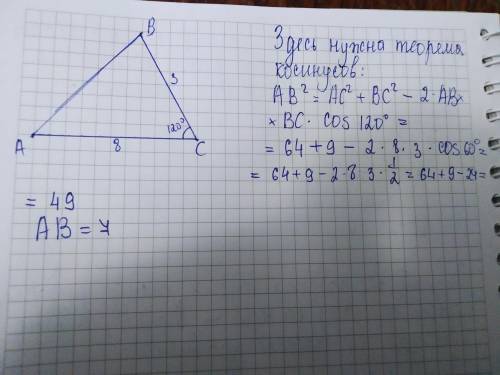 B
3
120°
A
8
C
Здесь нужна теорема
косинусов:
AB² = AC² + BC² - 2·AB×
× BC · cos 120° =
= 64 + 9 - 2·8·3·cos60°=
= 64+9-2·8·3·1/2 = 64+9-24=
= 49
AB = 7